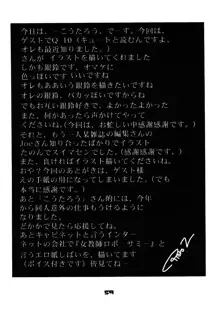 今日は、一こうたろう、です。今回は、
ゲストでＱ 10（キュートと読むんですよ。
オレも最近知りました。）
さんが イラストを描いてくれました
しかも眼鈴です。オマケに
色っぽいですいいですね
オレも、あんな眼鈴を描きたいですね
オレの眼鈴、バカっぽいですからね
でもお互い眼鈴好きで、よかったよかった
また、何かあったら声かけてやって
くださいね（今回は、お忙しい中感謝感謝です。）
それと、もう一人某雑誌の編集さんの
Joeさん知り合ったばかりでイラスト
たのんでスイマセンでした。（感謝感謝です。）
また、良ければイラスト描いてくださいね。
おおやっ？今回のあとがきは、ゲスト様
えの手紙の用になってしまいました。（でも
本当に感謝です。）
あと「こうたろう」さん的には、今年
から同人意外の仕事もうけるように
なりました。
どかかで見たら応援してね。
あとキャビネットと言うインター
ネットの会社で『女教師ロボーサミー』と
言うエロ紙しばいを、描いてます
（ボイス付きです）皆見てねー